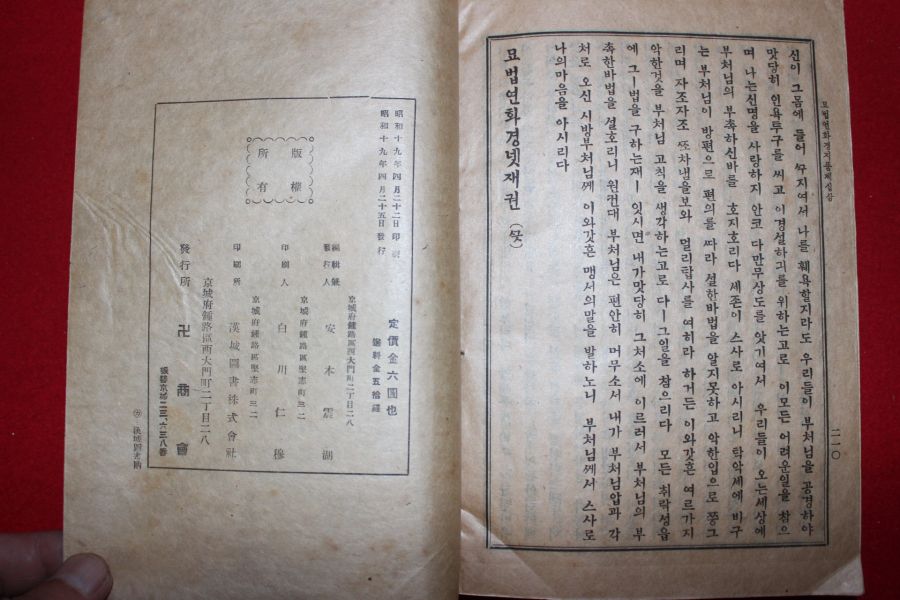 묘법연화경지품제십삼
二一〇
신이 그몸에 들어 ᄭᅮ지여서 나를 훼욕할지라도 우리들이 부처님을 공경하야
맛당히 인욕투구를 씨고 이경설하긔를 위하는고로 이모든 어려운일을 참으
며 나는신명을 사랑하지 안코 다만무상도를 앗기여서 우리들이 오는세상에
부처님의 부촉하신바를 호지호리다 세존이 스사로 아시리니 탁악세에 비구
는 부처님이 방편으로 편의를 ᄯᅡ라 설한바법을 알지못하고 악한입으로 ᄶᅵᆼ그
리며 자조자조 ᄶᅩ차냄을보와 멀리탑사를 여히라 하거든 이와갓흔 여르가지
악한것을 부처님 고칙을 생각하는고로 다ㅣ그일을 참으리다 모든 취락성읍
에 그ㅣ법을 구하는재ㅣ 잇시면 내가맛당히 그처소에 이르러서 부처님의 부
촉한바법을 설호리니 원컨대 부처님은 편안히 머무소서 내가 부처님압과 각
처로 오신 시방부처님께 이와갓흔 맹서의말을 발하노니 부처님께서 스사로
나의마음을 아시리다
묘법연화경넷재권 (ᄭᅳᆺ)
昭和十九年四月二十二日印刷
昭和十九年四月二十五日發行
版權
所有
定價金六圓也
京城府鍾路區西大門町二丁目二八
編輯兼
發行人 安本震湖
京城府鍾路區堅志町三二
印刷人 白川仁穆
京城府鍾路區堅志町三二
印刷所 漢城圖書株式會社
京城府鍾路區西大門町二丁目二八
發行所 卍商會
振替京城二三、六三八番